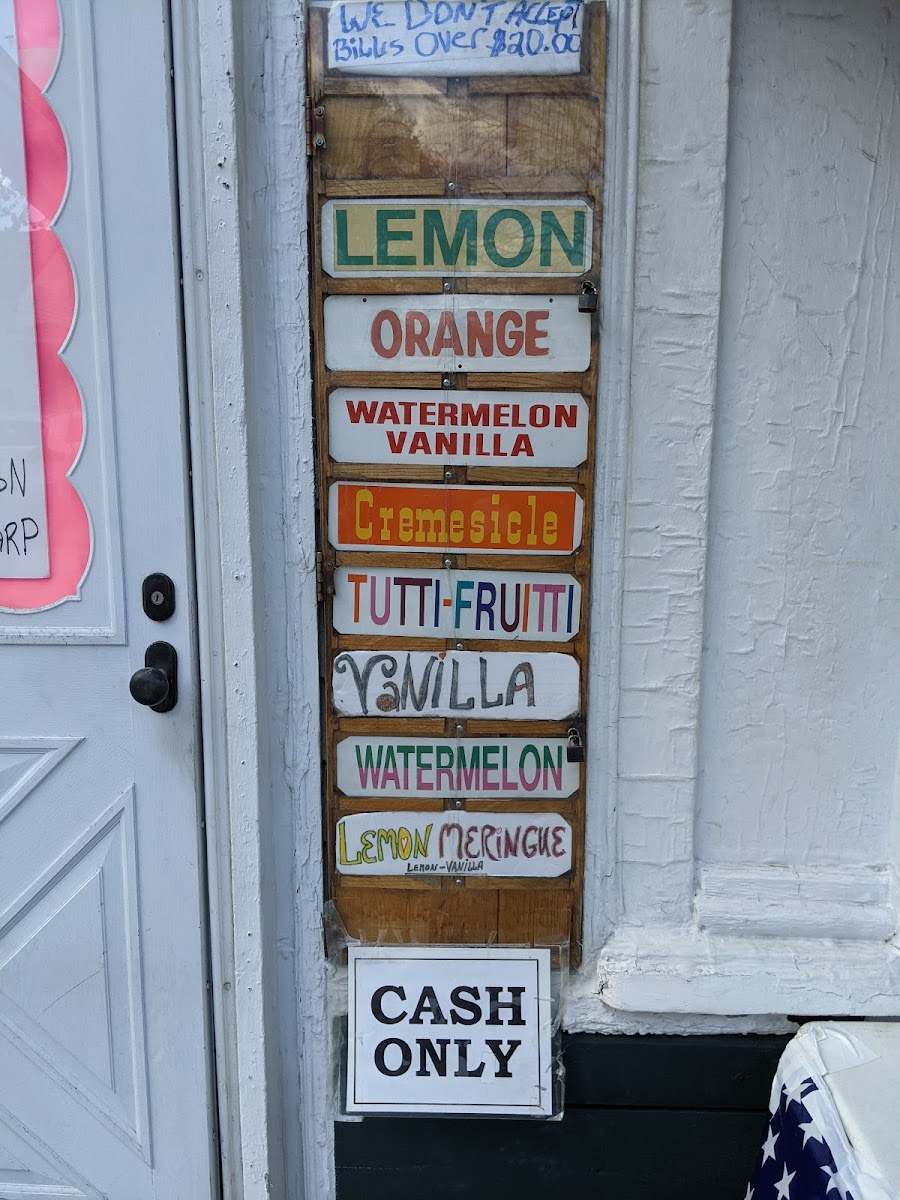 WE DON'T ACCEPT
Bills Over $20.00
LEMON
ORANGE
WATERMELON
VANILLA
Cremesicle
TUTTI-FRUITTI
VaNiLLA
WATERMELON
LEMON MERiNGUE
LEMON-VANiLLA
CASH
ONLY